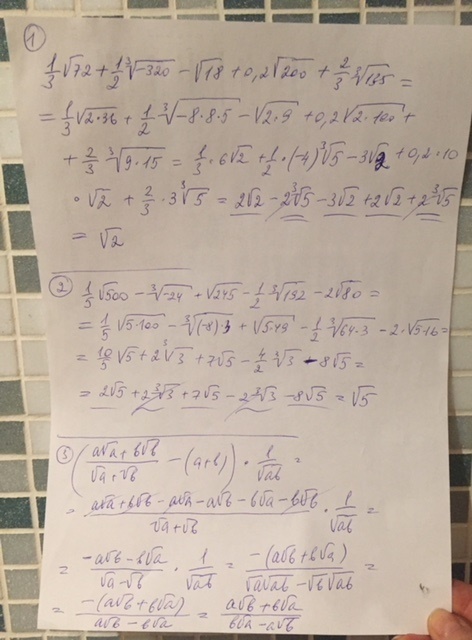 ①
1/3 √72 + 1/2 ∛-320 - √18 + 0,2√200 + 2/3 ∛135 =
= 1/3 √2·36 + 1/2 ∛-8·8·5 - √2·9 + 0,2√2·100 +
+ 2/3 ∛9·15 = 1/3 · 6√2 + 1/2 · (-4) ∛5 - 3√2 + 0,2·10
· √2 + 2/3 · 3∛5 = 2√2 - 2∛5 - 3√2 + 2√2 + 2∛5
= √2
② 1/5 √500 - ∛-24 + √245 - 1/2 ∛192 - 2√80 =
= 1/5 √5·100 - ∛(-8)·3 + √5·49 - 1/2 ∛64·3 - 2·√5·16 =
= 10/5 √5 + 2∛3 + 7√5 - 4/2 ∛3 - 8√5 =
= 2√5 + 2∛3 + 7√5 - 2∛3 - 8√5 = √5
③ ((a√a + b√b)/(√a + √b) - (a+b)) · 1/√ab =
= (a√a + b√b - a√a - a√b - b√a - b√b)/(√a + √b) · 1/√ab =
= (-a√b - b√a)/(√a - √b) · 1/√ab = -(a√b + b√a)/(√a√ab - √b√ab) =
= -(a√b + b√a)/(a√b - b√a) = (a√b + b√a)/(b√a - a√b)